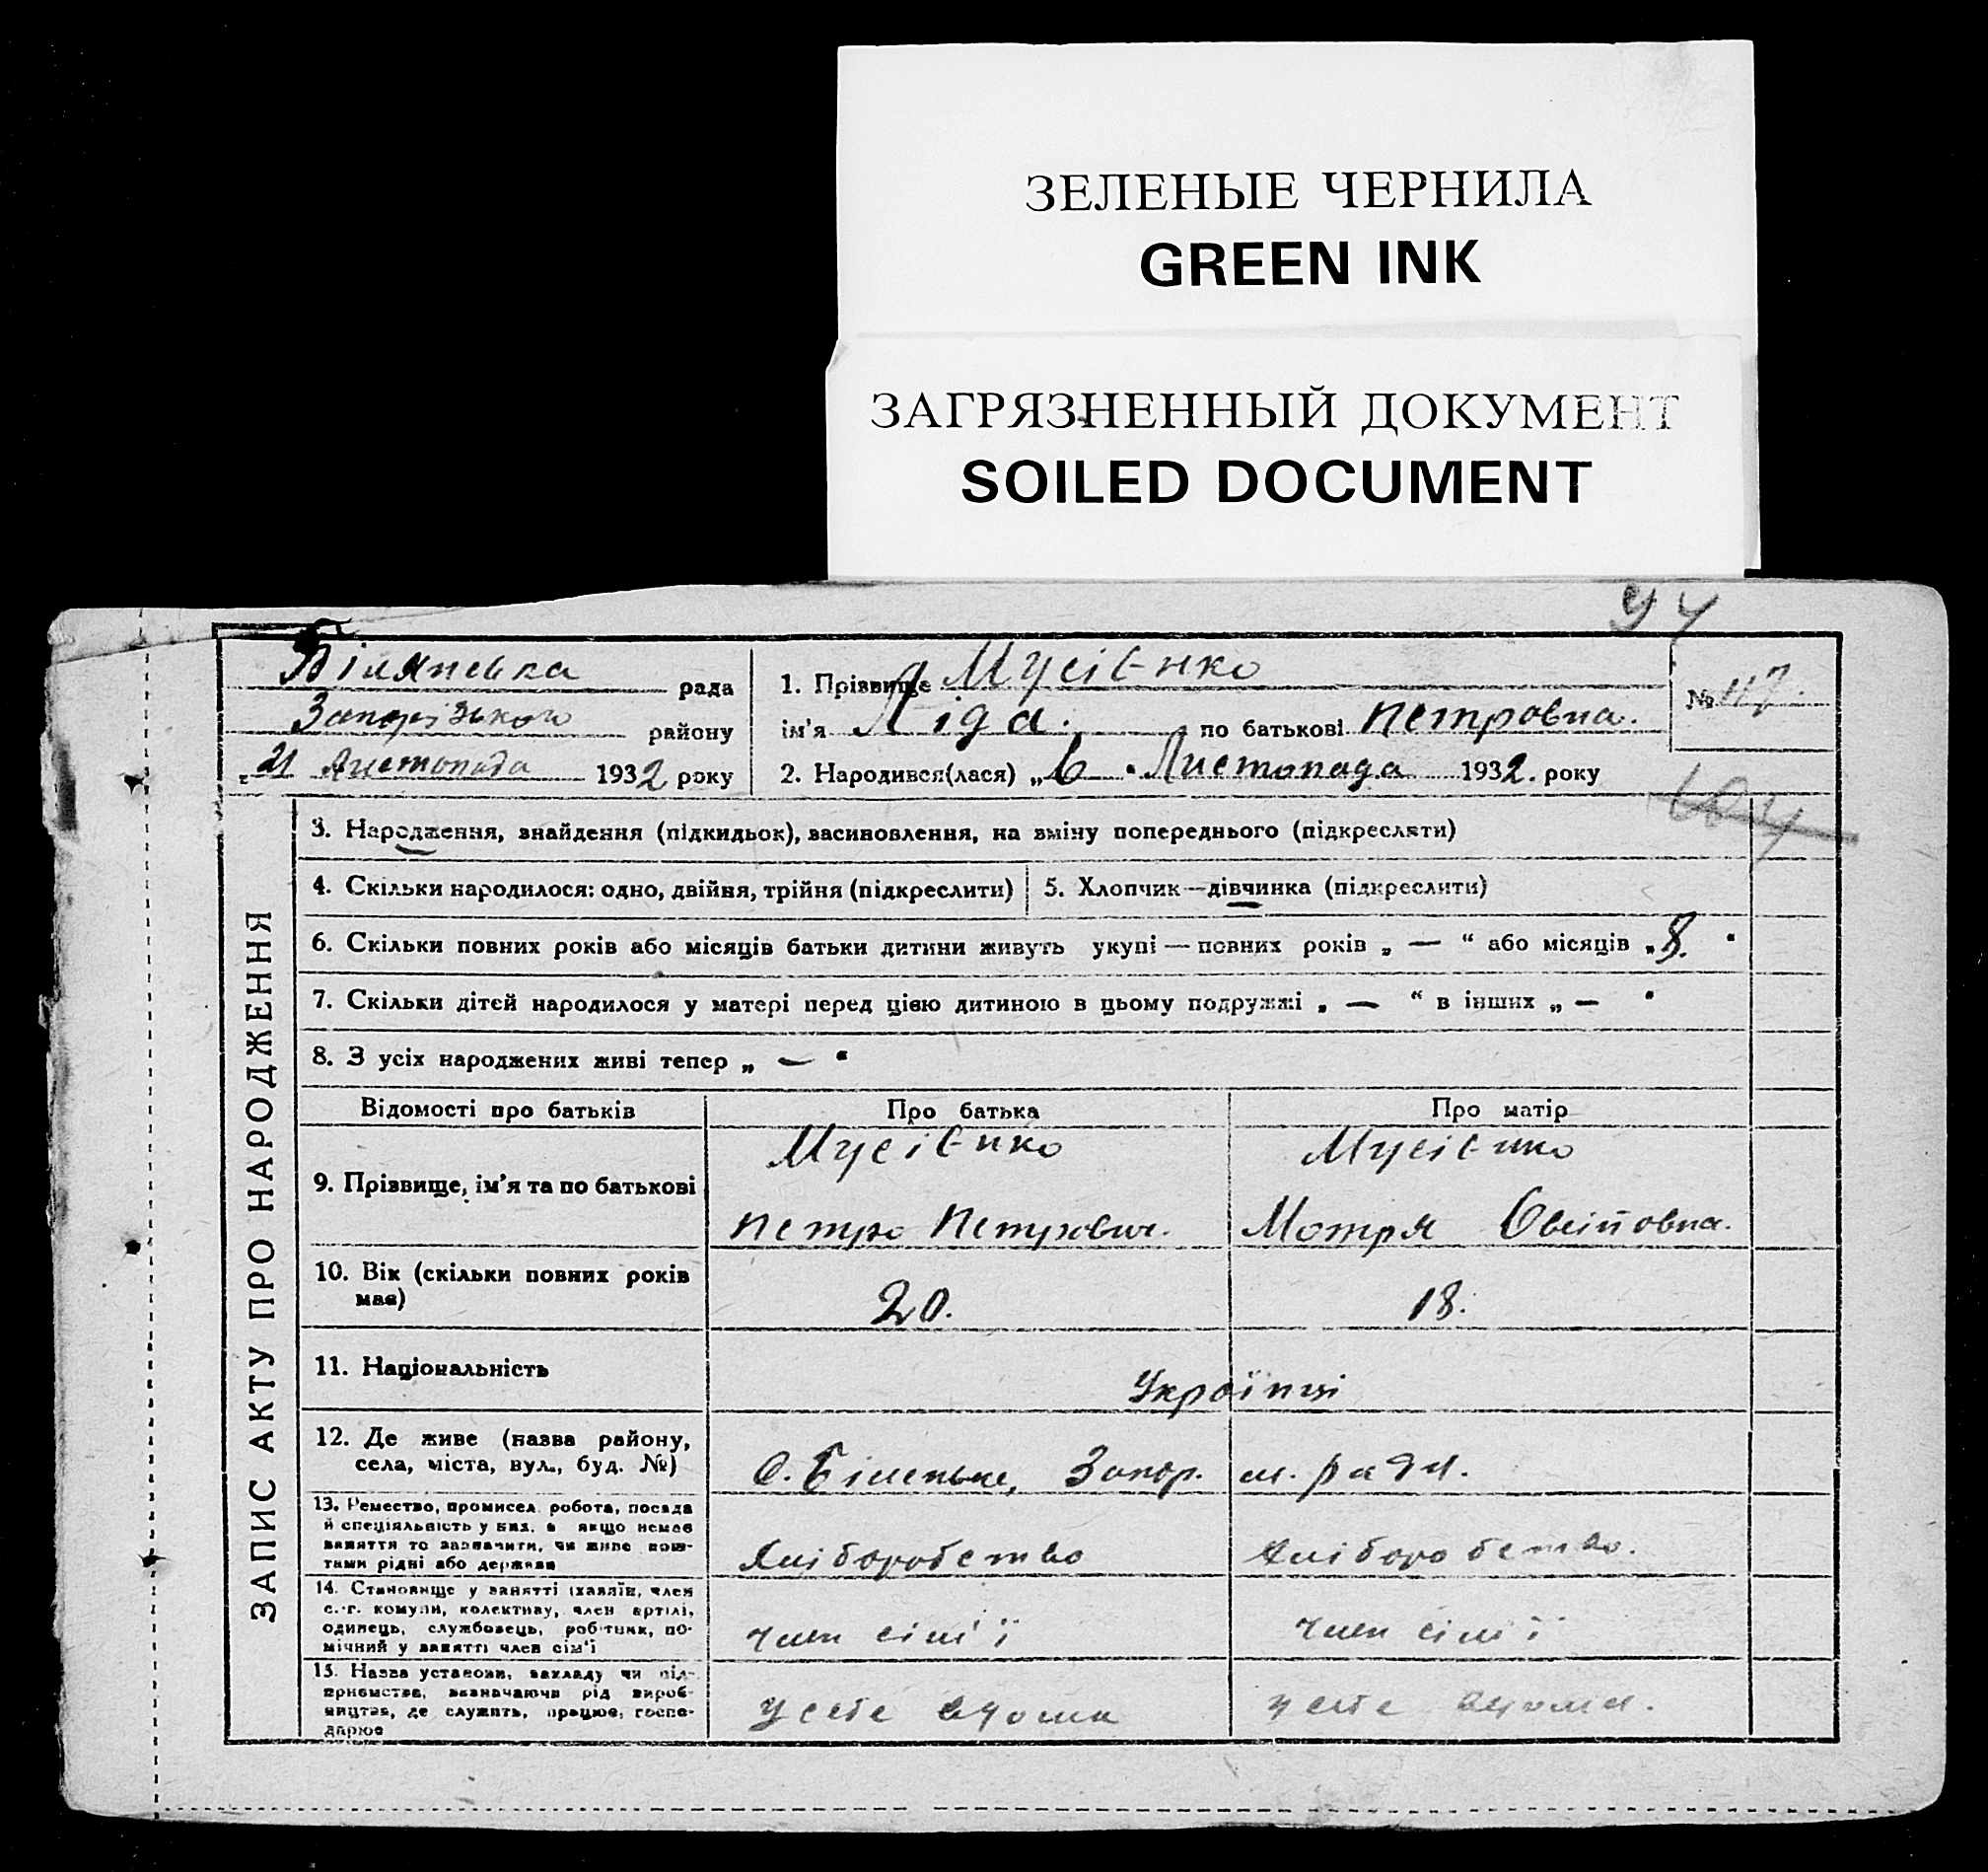 ЗЕЛЕНЫЕ ЧЕРНИЛА
GREEN INK
ЗАГРЯЗНЕННЫЙ ДОКУМЕНТ
SOILED DOCUMENT
94
Біляньська рада
Запорізького району
"21 Листопада 1932 року
1. Прізвище Мусієнко
ім'я Ліда. по батькові Петровна.
№ 117.
2. Народився(лася) „6 " Листопада 1932. року
104
ЗАПИС АКТУ ПРО НАРОДЖЕННЯ
3. Народження, знайдення (підкидьок), засиновлення, на зміну попереднього (підкреслити)
4. Скільки народилося: одно, двійня, трійня (підкреслити)
5. Хлопчик—дівчинка (підкреслити)
6. Скільки повних років або місяців батьки дитини живуть укупі — повних років „ — “ або місяців „8. "
7. Скільки дітей народилося у матері перед цією дитиною в цьому подружжі „ — “ в інших „ — "
8. З усіх народжених живі тепер „ — "
Відомості про батьків Про батька Про матір
9. Прізвище, ім'я та по батькові
Мусієнко
Петро Петрович.
Мусієнко
Мотря Овсійовна.
10. Вік (скільки повних років має)
20. 18.
11. Національність
Українці
12. Де живе (назва району,
села, міста, вул., буд. №)
с. Біленьке, Запор. м. район.
13. Ремество, промисел, робота, посада
й спеціяльність у них, а якщо немає
заняття то зазначити, чи живе кош-
тами рідні або держави
Хліборобство Хліборобство.
14. Становище у занятті (хазяїн, член
с.-г. комуни, колективу, член артілі,
одинець, службовець, робітник, по-
мічний у занятті член сім'ї
член сім'ї член сім'ї
15. Назва установи, закладу чи під-
приємства, зазначаючи рід вироб-
ництва, де служить, працює, госпо-
дарює
у себе вдома у себе вдома.